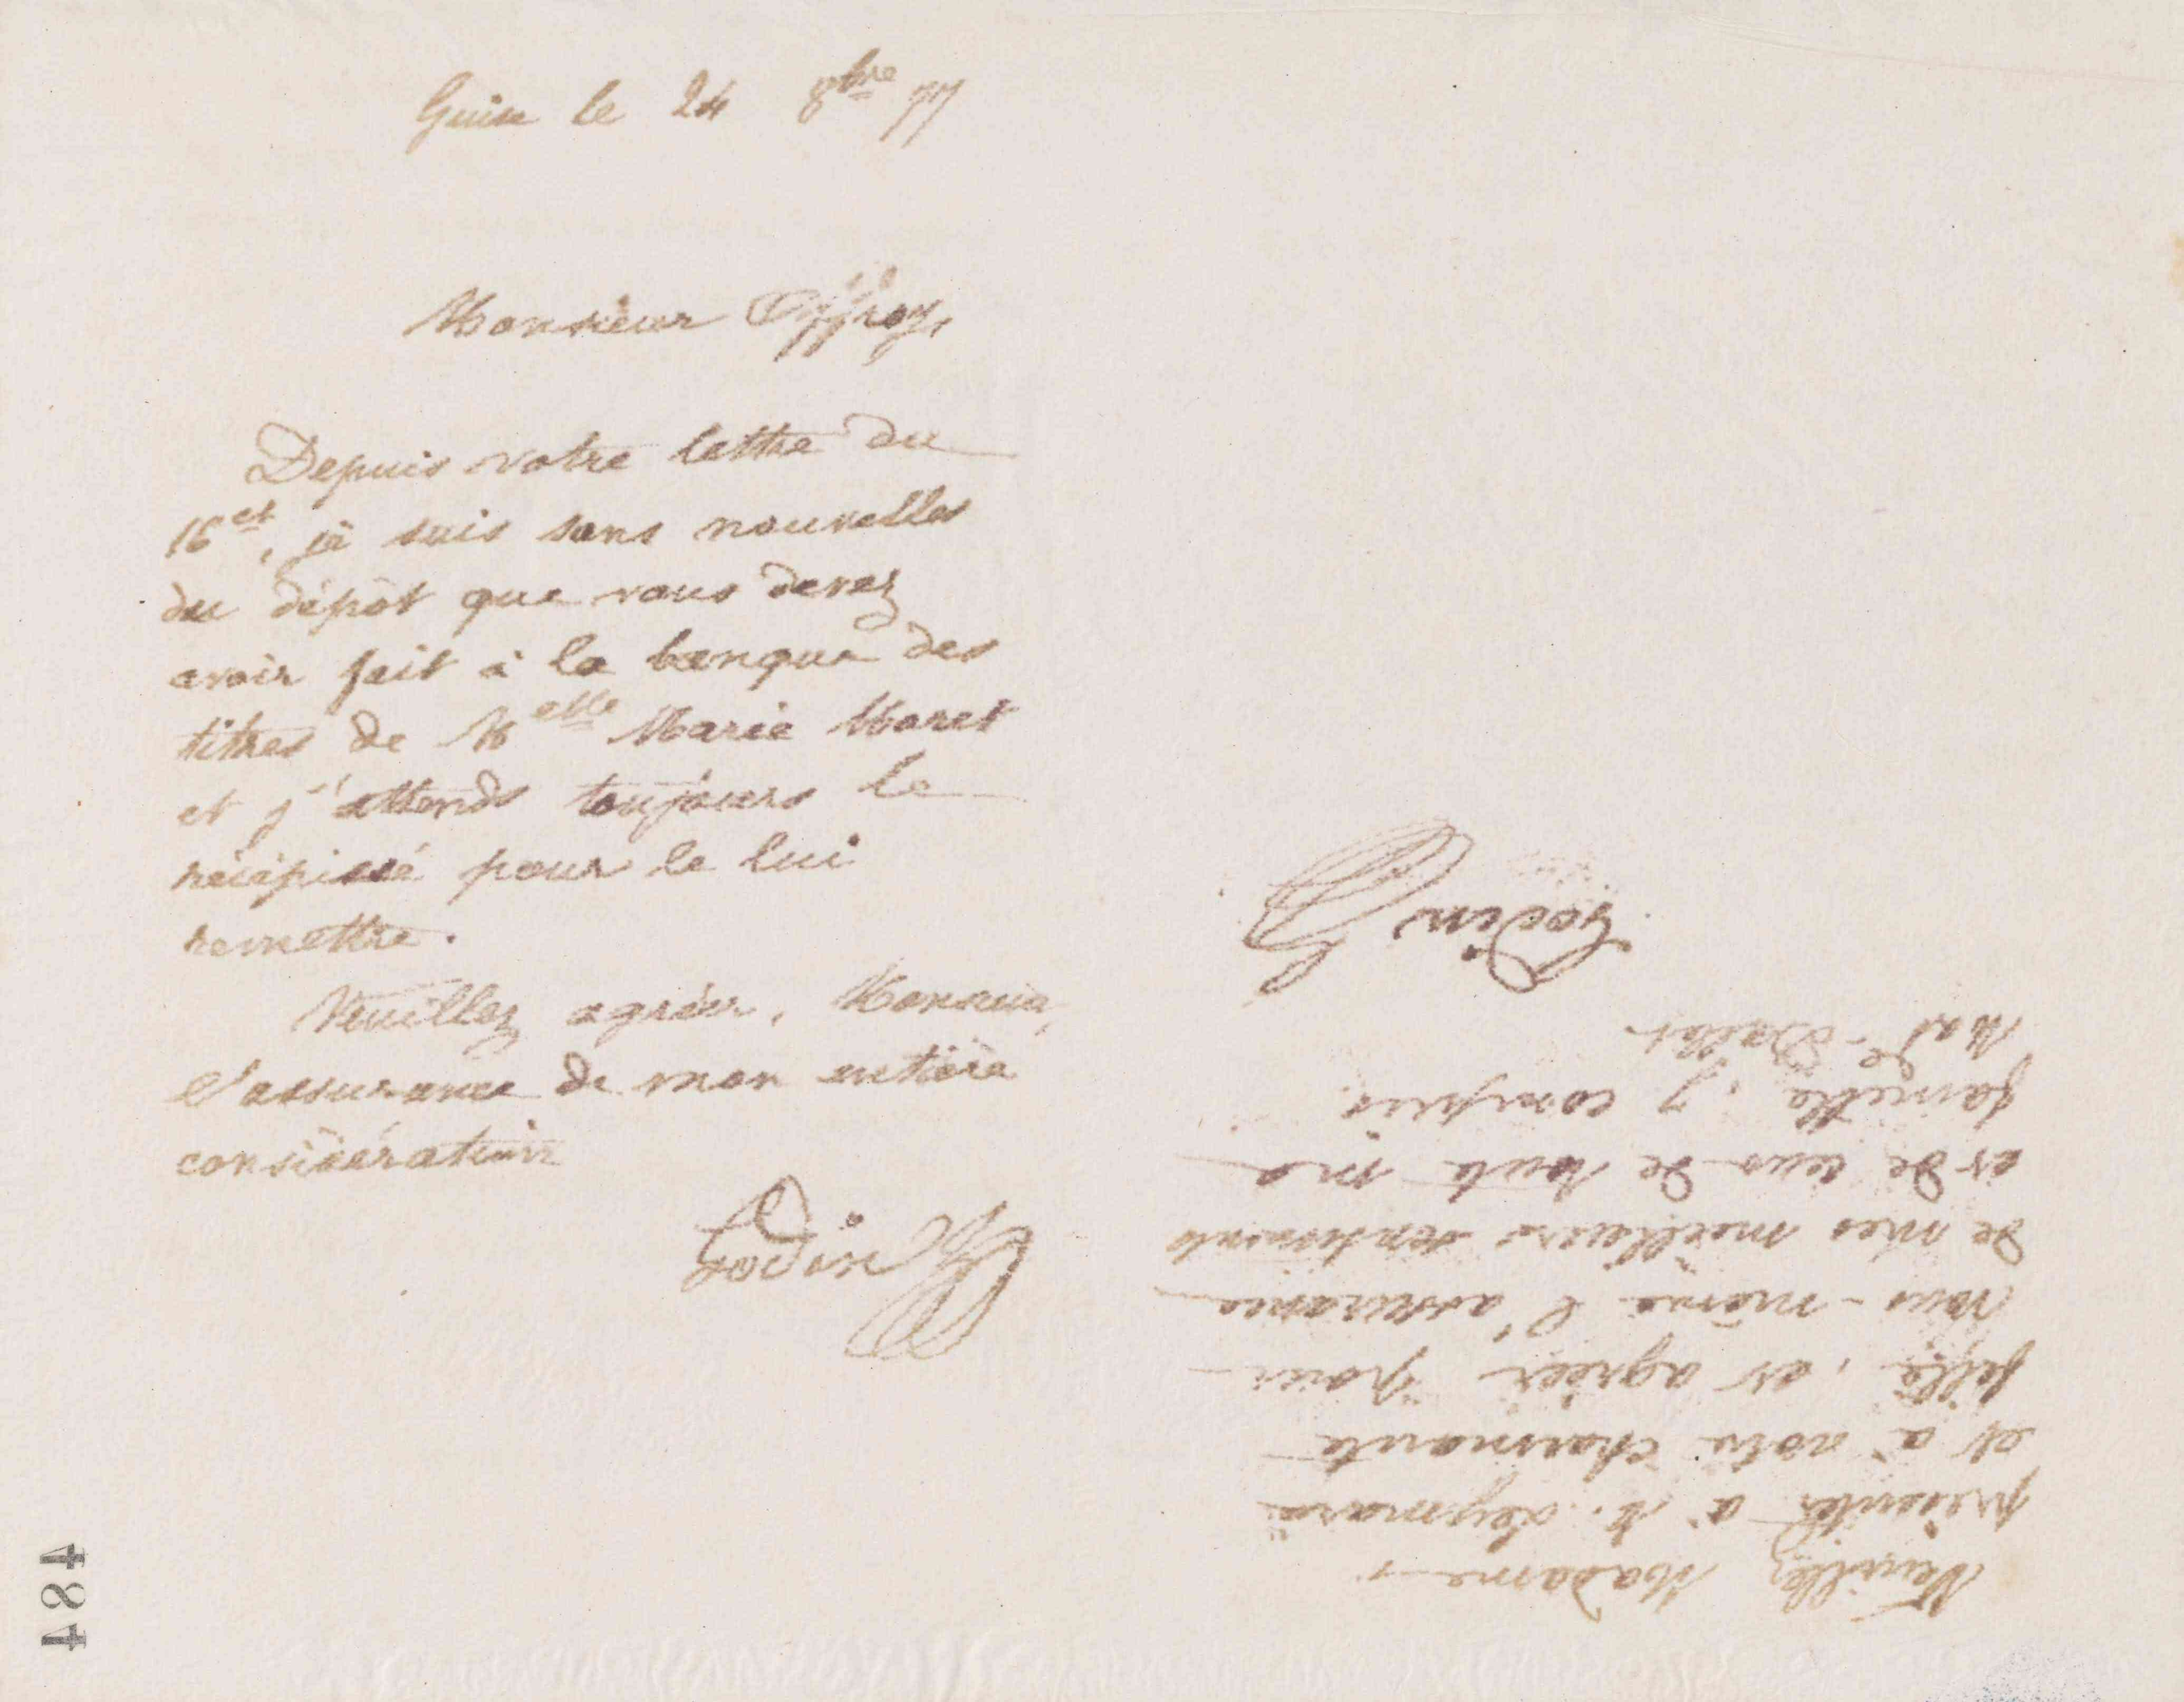 Guise le 24 8bre 77
Monsieur Offroy,
Depuis votre lettre du
16 ct, je suis sans nouvelles
du dépôt que vous devez
avoir fait à la banque des
titres de Melle Marie Moret
et j'attends toujours le
récépissé pour le lui
remettre.
Veuillez agréer, Monsieur,
l'assurance de mon entière
considération
Godin
Veuillez Madame,
présenter à M. Leymarie
et à votre charmante
fille, et agréer pour
vous-même l'assurance
de mes meilleurs sentiments
et de ceux de toute ma
famille, y compris
Made Dallet.
Godin
484